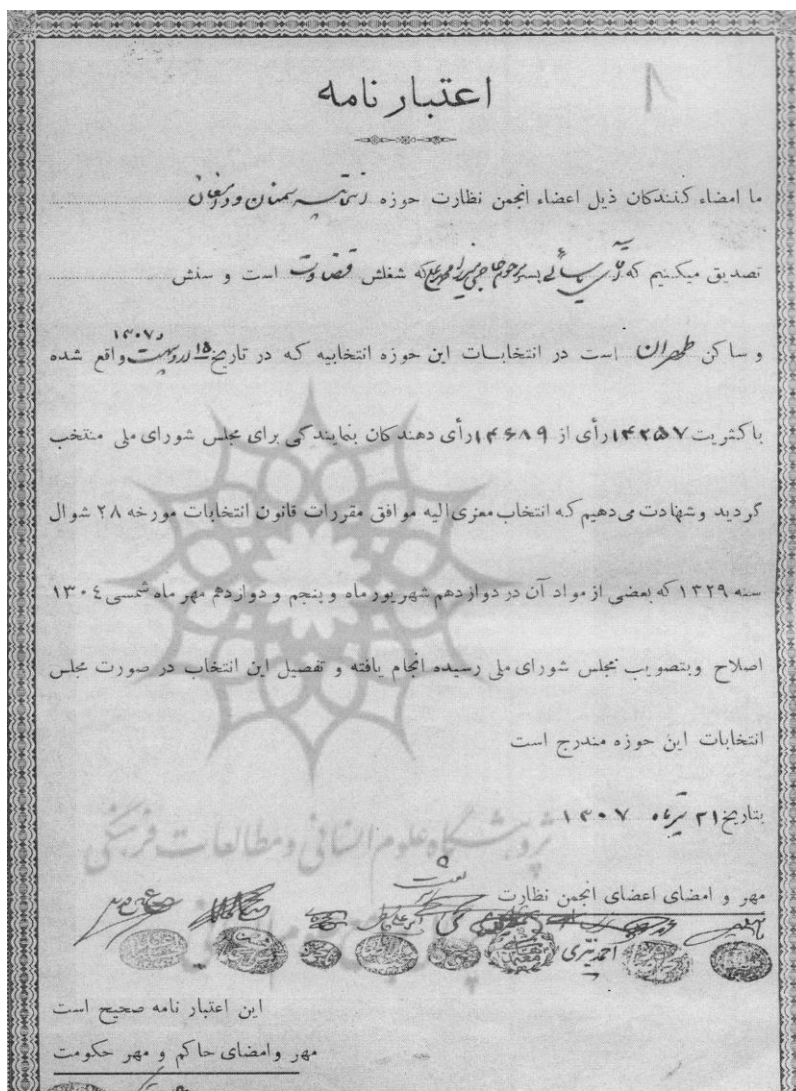 اعتبار نامه
ما امضاء کنندکان ذیل اعضاء انجمن نظارت حوزه انتخابیه سمنان و دامغان
تصدیق میکنیم که آقای یاسائی پسر مرحوم حاجی میرزا محمدعلی که شغلش قضاوت است و سنش
و ساکن طهران است در انتخابات این حوزه انتخابیه که در تاریخ ۱۵ اردیبهشت ۱۳۰۷ واقع شده
باکثریت ۱۴۲۵۷ رأی از ۱۴۶۸۹ رأی دهندکان بنمایندکی برای مجلس شورای ملی منتخب
کردید وشهادت می‌دهیم که انتخاب معزی‌الیه موافق مقررات قانون انتخابات مورخه ۲۸ شوال
سنه ۱۳۲۹ که بعضی از مواد آن در دوازدهم شهریور ماه و پنجم و دوازدهم مهر ماه شمسی ۱۳۰٤
اصلاح وبتصویب مجلس شورای ملی رسیده انجام یافته و تفصیل این انتخاب در صورت مجلس
انتخابات این حوزه مندرج است
بتاریخ ۲۱ تیرماه ۱۳۰۷
پژوهشگاه علوم انسانی و مطالعات فرهنگی
مهر و امضای اعضای انجمن نظارت
این اعتبار نامه صحیح است
مهر وامضای حاکم و مهر حکومت